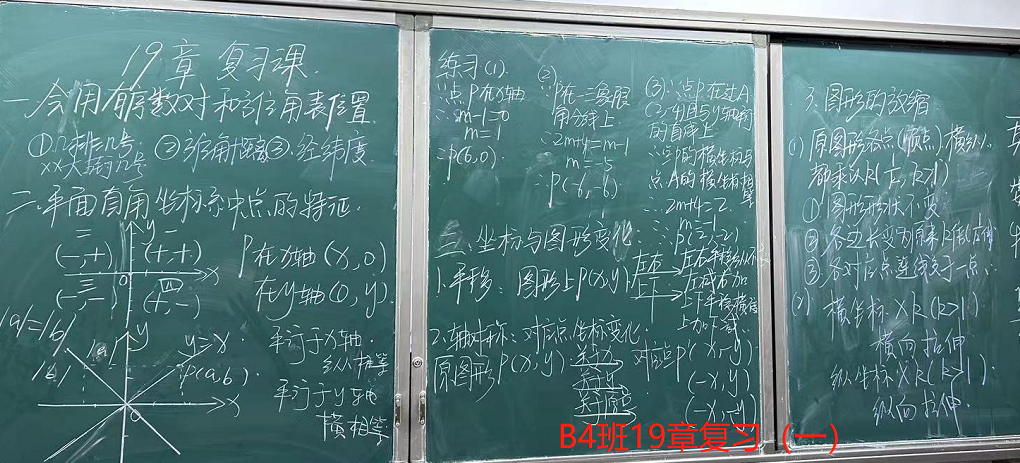 19章 复习课.
一.会用有序数对和方位角表位置
①几排几号 ②方位角+距离③.经纬度.
二.平面直角坐标系中点的特征.
二 y 一
(-,+) (+,+)
0 x
三 四
(-,-) (+,-)
P在x轴(x,0)
在y轴(0,y).
|a|=|b| y y=x
|a|
|b| P(a,b).
x
平行于x轴
纵相等
平行于y轴
横相等
练习(1).
∵点P在x轴
∴m-1=0
m=1
∴P(6,0).
(2)
∵P在一三象限
角分线上
∴2m+4=m-1
m=-5
∴P(-6,-6).
(3)∵点P在过A
(2,-4)且与y轴平行
的直线上
∴点P的横坐标与
点A的横坐标相等
∴2m+4=2.
m=-1
∴P(2,-2)
三、坐标与图形变化:
1.平移: 图形上P(x,y)
左右
上下
2.轴对称: 对应点坐标变化:
原图形P(x,y) 关于x 对应点P'(x,-y)
关于y (-x,y)
关于原点 (-x,-y)
3.图形的放缩
(1)原图形各点(顶点)横纵
都乘以k
①图形形状不变
②各边长变为原来k倍
③各对应点连线交于一点
(2) 横坐标×k(k>1)
横向拉伸
纵坐标×k(k>1).
纵向拉伸.
B4班19章复习（一）